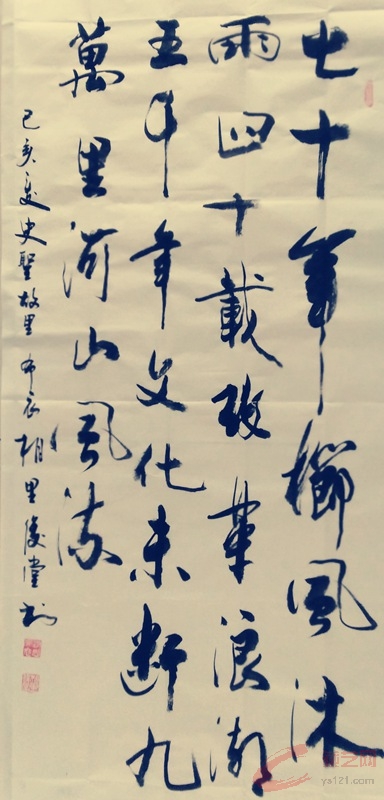 七十年櫛風沐
雨四十載改革浪潮
五千年文化未斷九
萬里河山風流
己亥夏史聖故里布衣相里堂
ys121.com